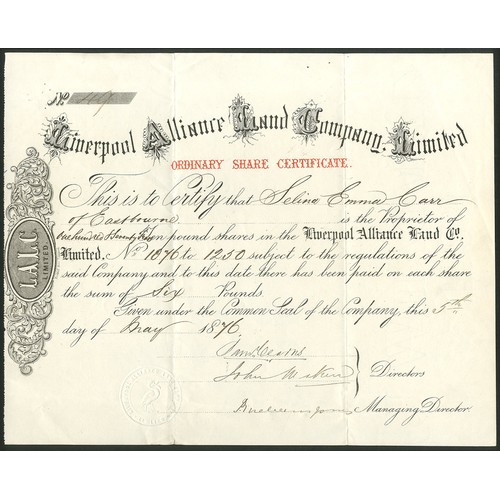 No.
Liverpool Alliance Land Company, Limited
ORDINARY SHARE CERTIFICATE.
This is to Certify that Selina Emma Carr
of Eastbourne is the Proprietor of
One hundred & seventy five ten pound shares in the Liverpool Alliance Land Co.
Limited. No. 1076 to 1250 subject to the regulations of the
said Company and to this date there has been paid on each share
the sum of Six Pounds.
Given under the Common Seal of the Company, this 5th
day of May 1876
John
Directors
Managing Director.
L.A.L.C.
LIMITED.